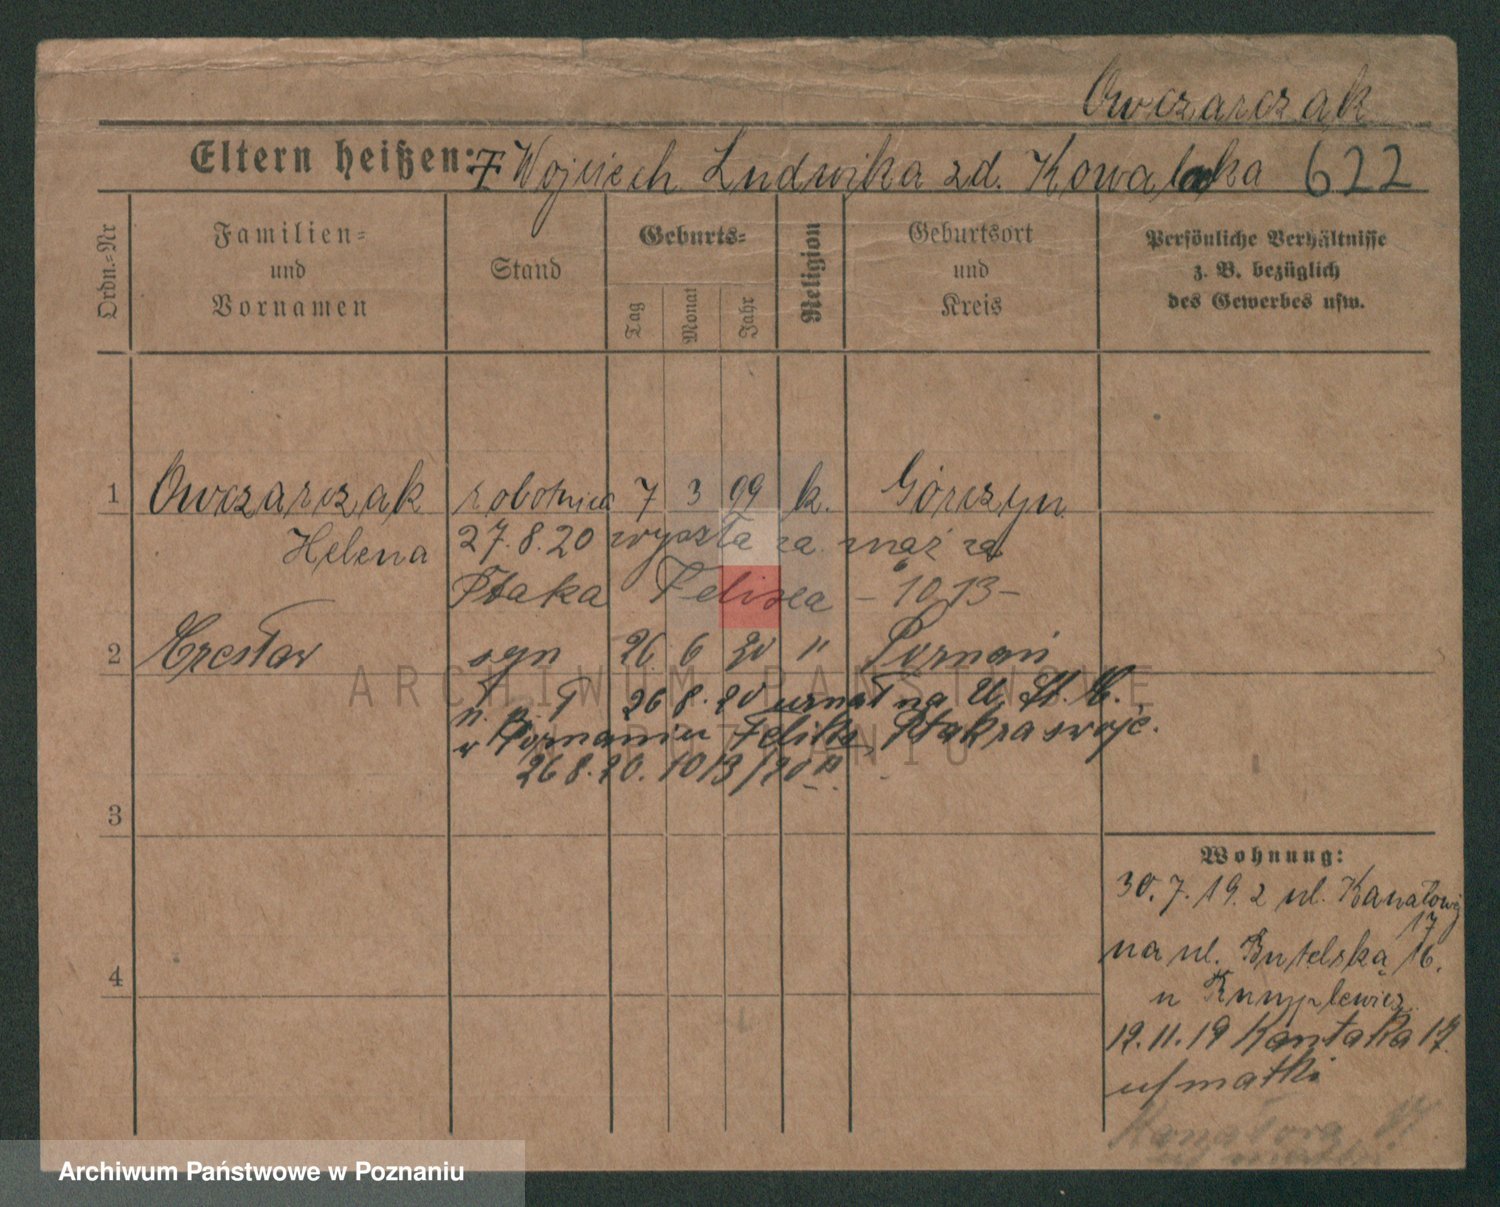 Owczarczak
Eltern heißen: Wojciech Ludwika zd. Kowalska 622
Ordn.-Nr
Familien- und Vornamen
Stand
Geburts-
Tag
Monat
Jahr
Religion
Geburtsort und Kreis
Persönliche Verhältnisse
z. B. bezüglich
des Gewerbes usw.
1 Owczarczak robotnica 7 3 99 k. Górczyn
Helena 27.8.20 wyszła za mąż za
Ptaka Felixa – 1013 –
2 Czesław syn 26 6 20 " Poznań
26 8. 20 uznał na U. St. C.
w Poznaniu Feliks Ptak za swoje.
26 8. 20. 1013/20
3
4
Wohnung:
30. 7. 19. z ul. Kanałowej
17
na ul. Butelską 16.
u
12. 11. 19 Kantaka 17
u/ matki
Kanałowa 17
ARCHIWUM PAŃSTWOWE
W POZNANIU
Archiwum Państwowe w Poznaniu